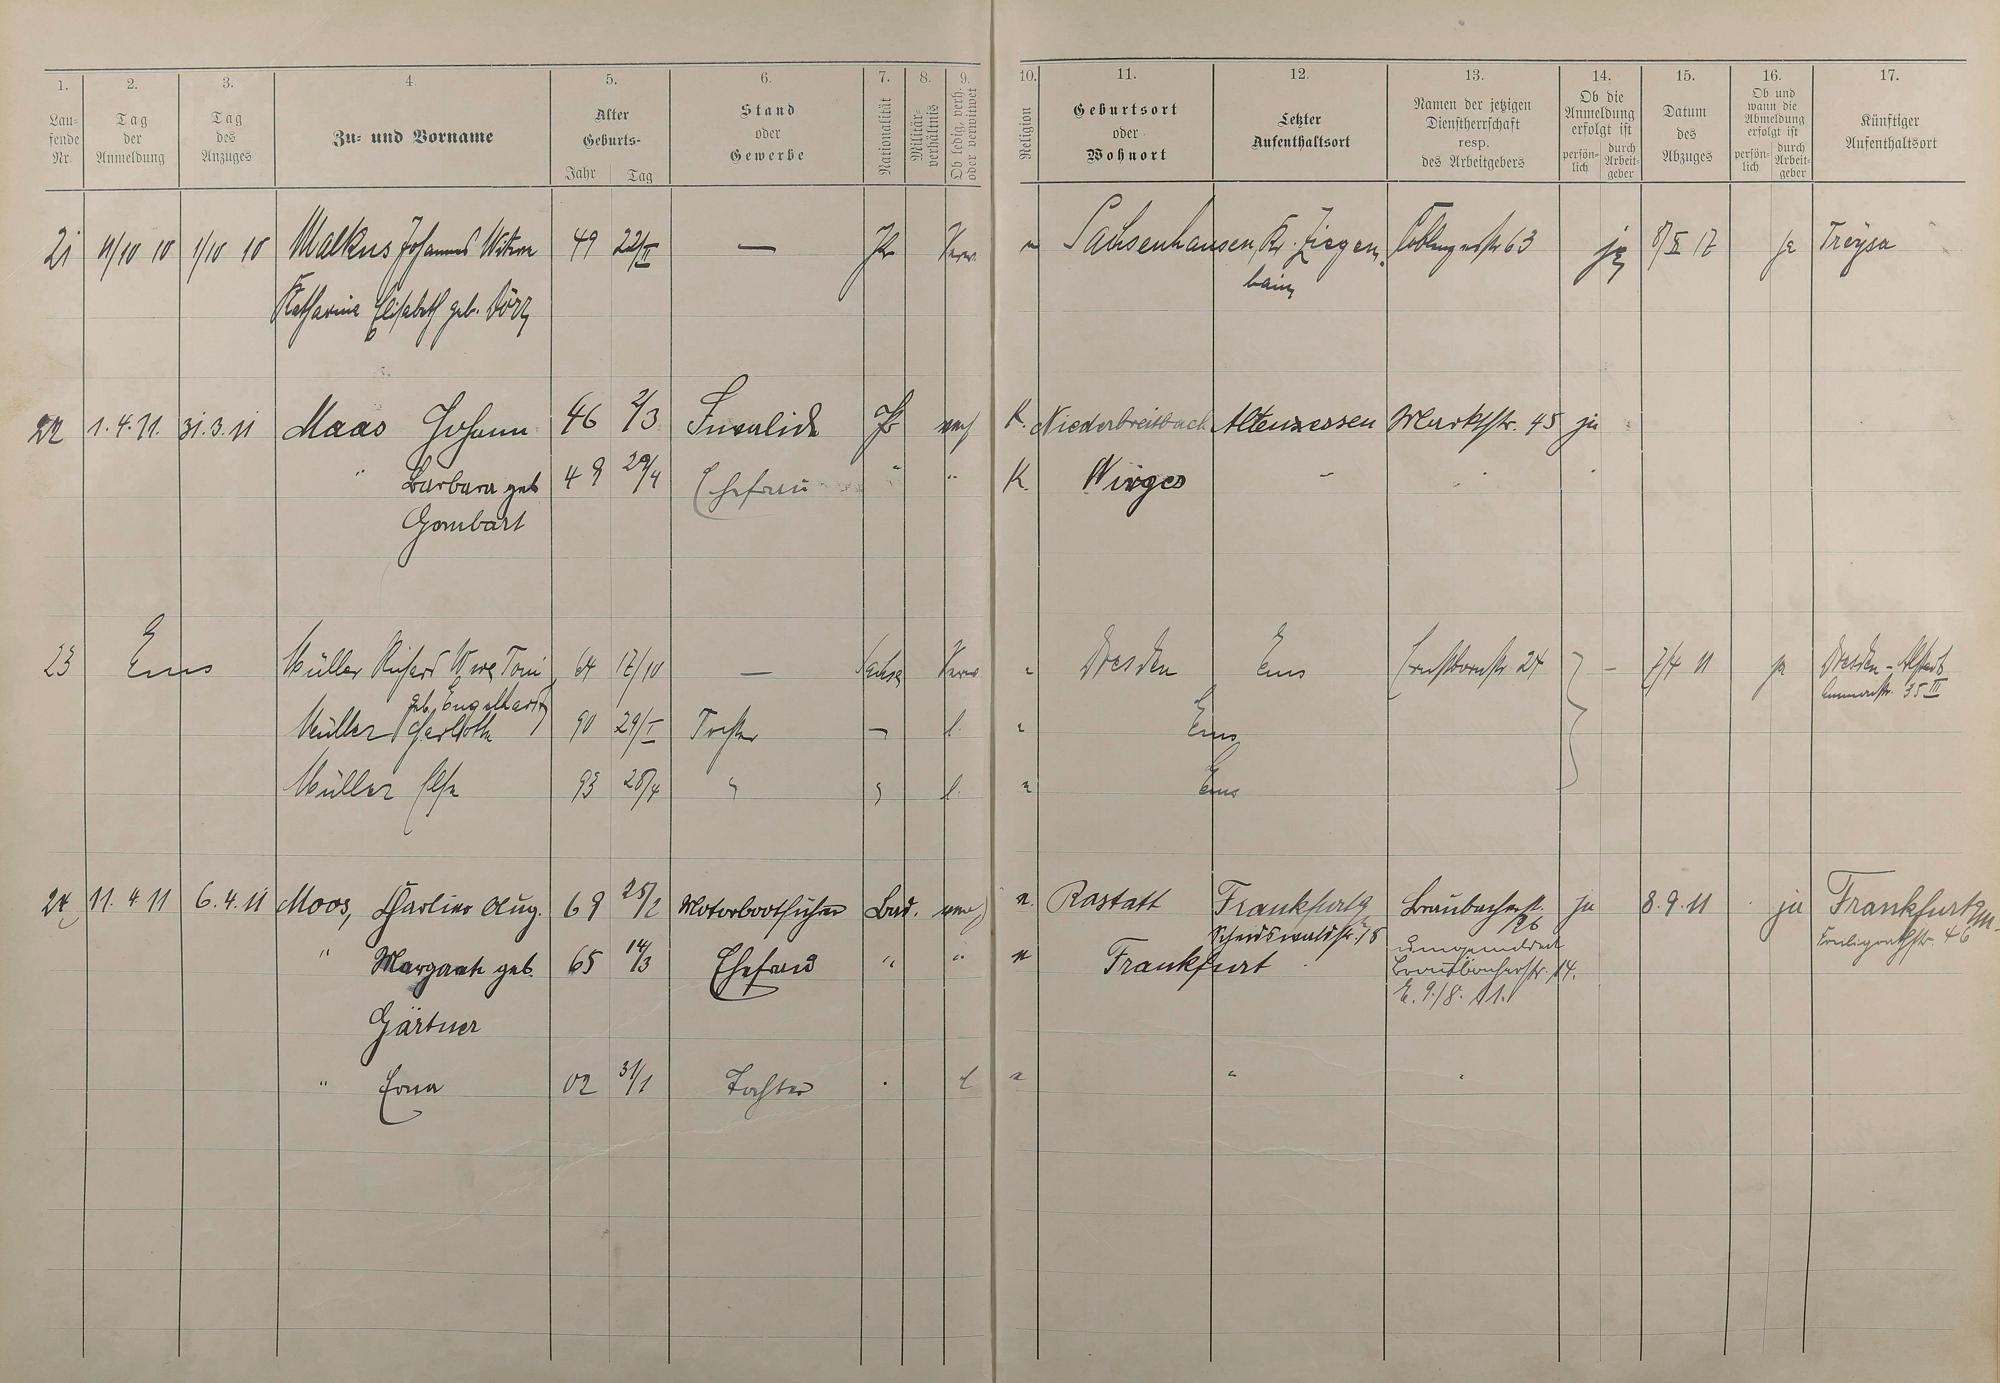 1. 2. 3. 4. 5. 6. 7. 8. 9. 10. 11. 12. 13. 14. 15. 16. 17.
Lau-
fende
Nr.
Tag
der
Anmeldung
Tag
des
Anzuges
Zu- und Vorname
Alter
Geburts-
Jahr Tag
Stand
oder
Gewerbe
Nationalität
Militär-
verhältnis
Ob ledig, verh.
oder verwitwet
Religion
Geburtsort
oder
Wohnort
Letzter
Aufenthaltsort
Namen der jetzigen
Dienstherrschaft
resp.
des Arbeitgebers
Ob die
Anmeldung
erfolgt ist
persön-
lich
durch
Arbeit-
geber
Datum
des
Abzuges
Ob und
wann die
Abmeldung
erfolgt ist
persön-
lich
durch
Arbeit-
geber
Künftiger
Aufenthaltsort
21 11/10 10 1/10 10 Malkus Johannes Witwe 49 22/II — Pr Verw. Sachsenhausen, Kr. Ziegen- 63 ja 8/X 17 ja Treysa
Katharina Elisabeth geb. Dörr hain
22 1.4.11. 31.3.11 Maas Johann 46 2/3 Invalide Pr verh K. Niederbreitbach Altenessen Marktstr. 45 ja
" Barbara geb 48 29/4 Ehefrau " " K. Wirges -
Gombart
23 Ems Müller Richard Wwe Toni 64 17/10 — Sachse Verw Dresden Ems Ernstbornstr 24 - 7/4 11 ja Dresden-Altstadt
geb. Engelhardt 35 III
Müller Charlotte 90 29/I Tochter — l. Ems
Müller Else 93 28/4 " " l. Ems
24 11.4 11 6.4.11 Moos, Karl Aug. 68 25/2 Motorbootführer Bad. verh Rastatt Frankfurt a ja 8.9.11 ja Frankfurt a/M.
Scheidswaldstr. 18 26 Freiligrathstr. 46
" Margarete geb. 65 14/3 Ehefrau " " Frankfurt umgemeldet
14.
Gärtner E. 9./8. 11.
" Erna 02 31/1 Tochter l "